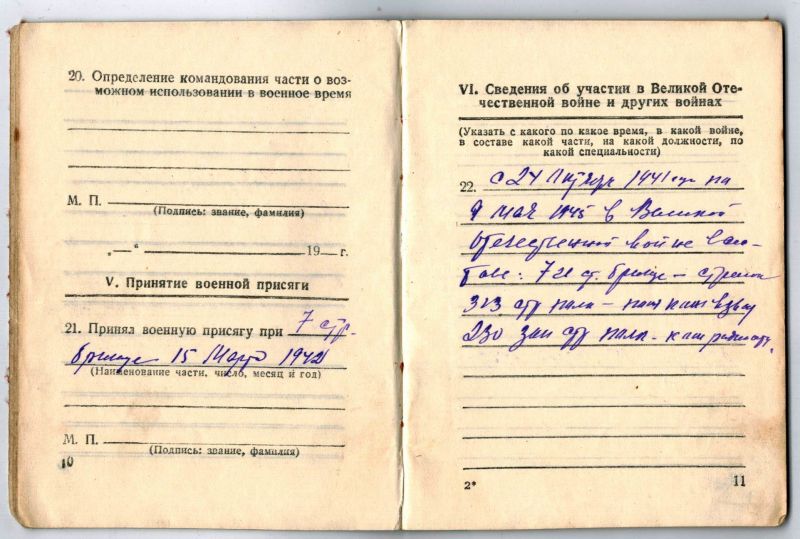 20. Определение командования части о воз-
можном использовании в военное время
М. П.
(Подпись: звание, фамилия)
„—“ 19— г.
V. Принятие военной присяги
21. Принял военную присягу при 7 стр.
бригаде 15 Марта 1942
(Наименование части, число, месяц и год)
М. П.
(Подпись: звание, фамилия)
10
VI. Сведения об участии в Великой Оте-
чественной войне и других войнах
(Указать с какого по какое время, в какой войне,
в составе какой части, на какой должности, по
какой специальности)
22. с 24 1941 года по
9 мая 1945 в Великой
отечественной войне в сос-
таве: 7 стр. бригада – стрелок
313 стр полк – взвод
230 зап стр полк –
2*
11